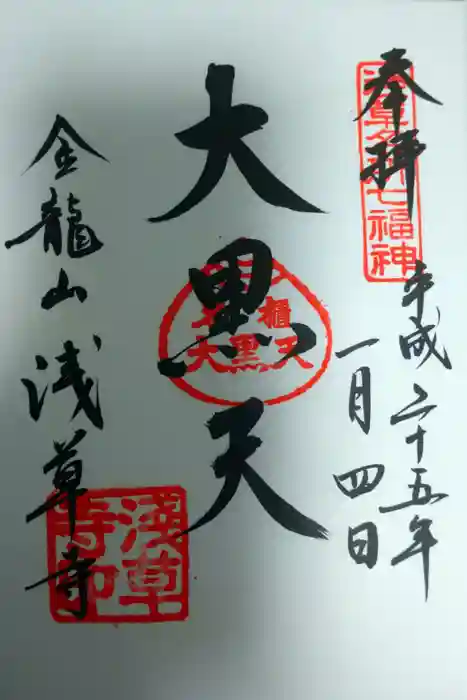 奉拝
浅草名所七福神
平成二十五年
一月四日
大黒天
金龍山 浅草寺
浅草
寺印